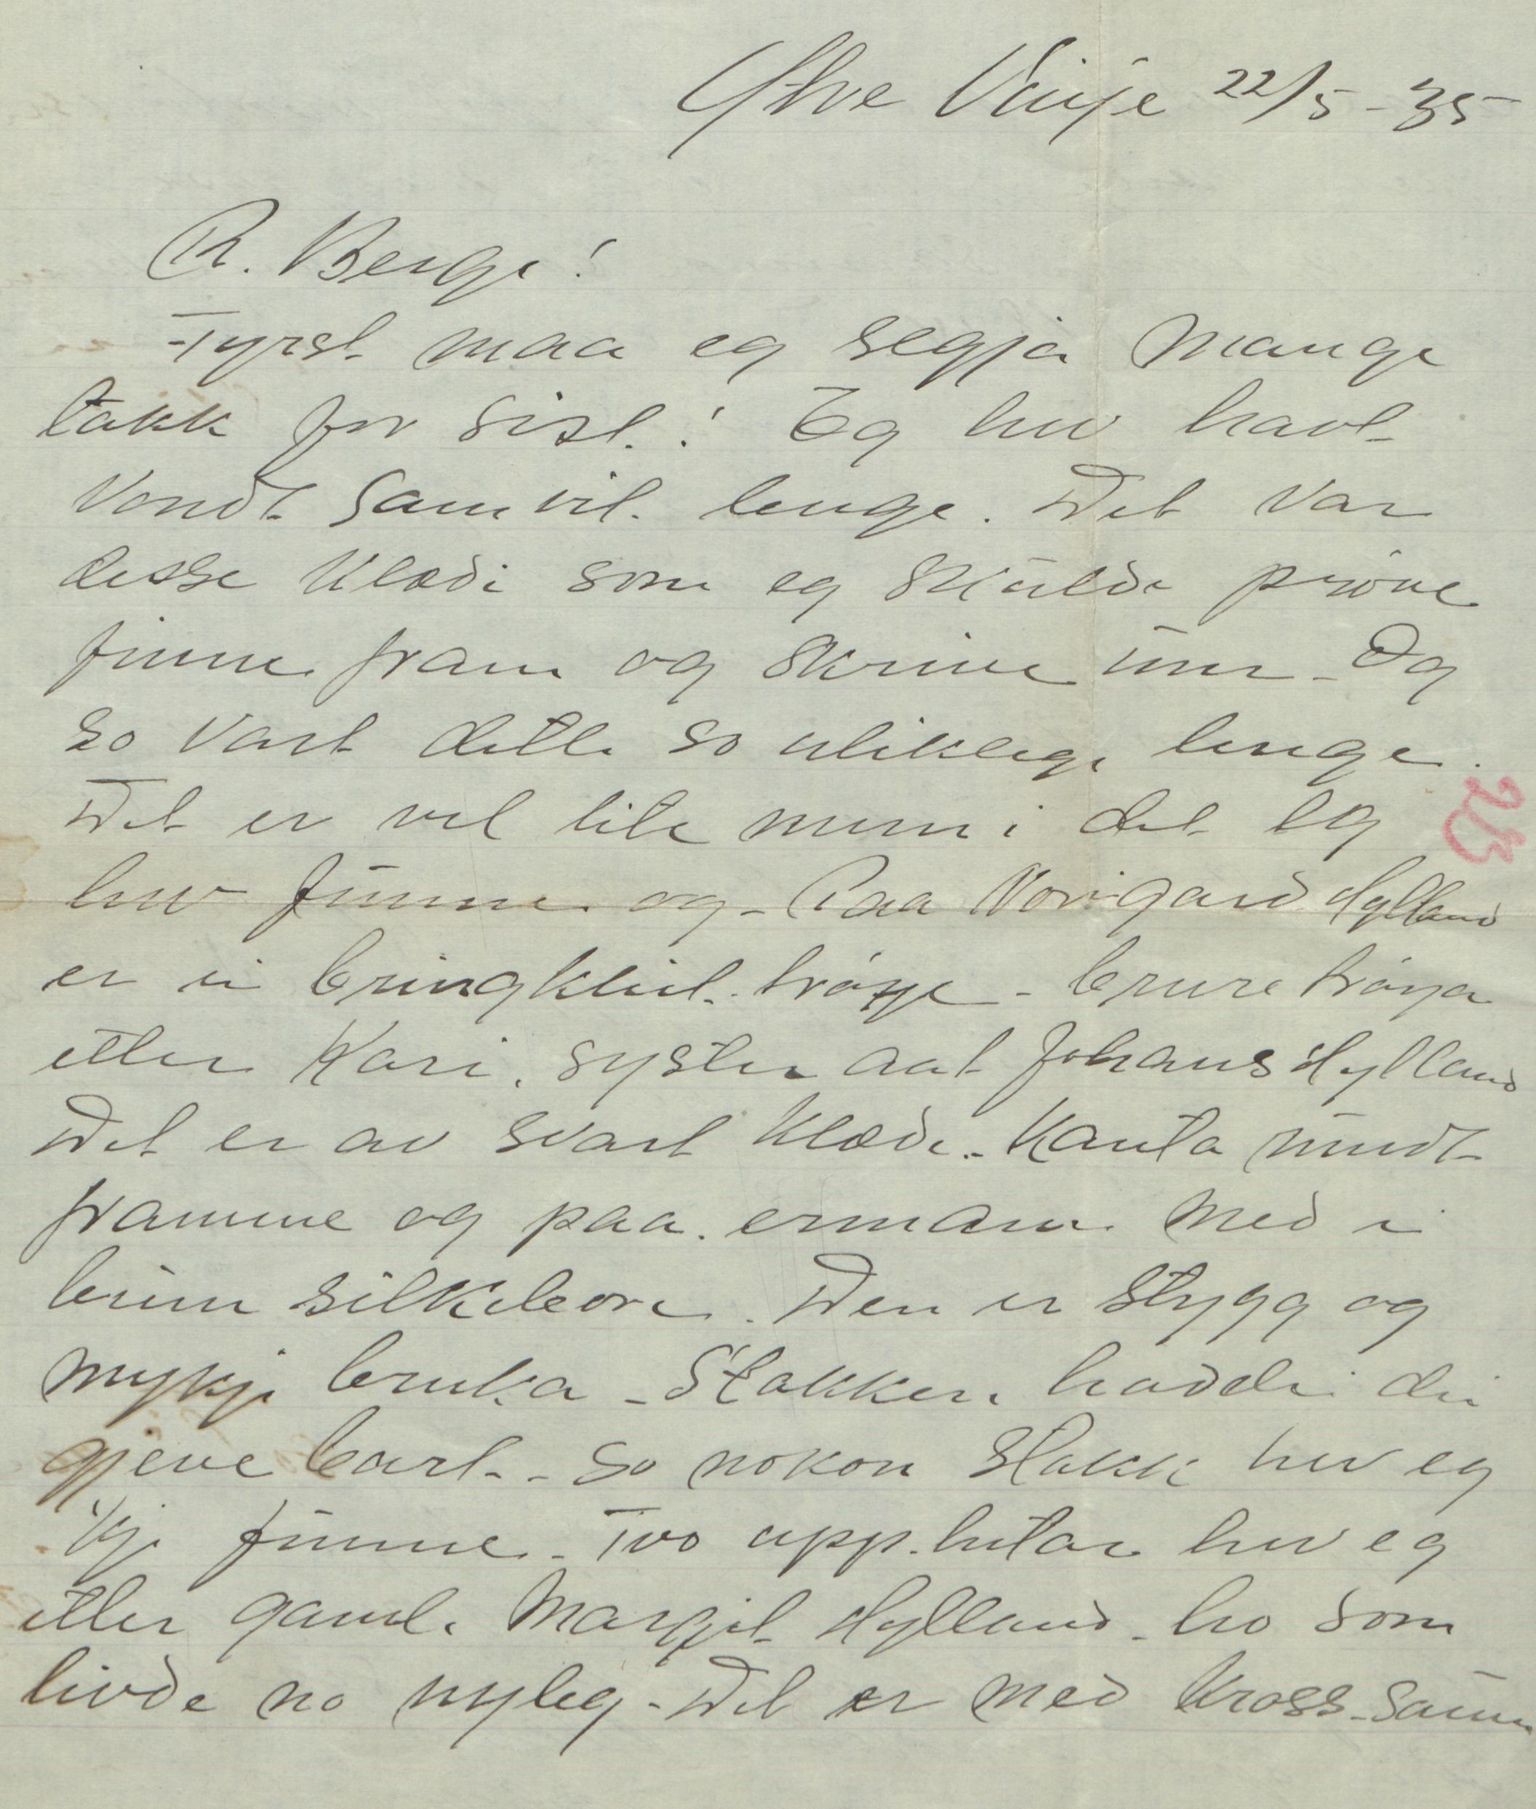 Ytre Vinje 22/5-35
R. Berge!
Fyrst maa eg segja mange
takk for sist! Eg hev havt
vondt samvit lenge. Det var
desse klædi som eg skulde prøve
finne fram og skrive um. Og
so vart dette so ulikleg lenge.
Det er vel lite mun i det eg
hev funne og. Paa Norigard Hylland
er ei bringklut-trøye - brure trøya
etter Kari, syster aat Johans Hylland
Det er av svart klæde. Kanta rundt
framme og paa ermam med ei
brun silkebore. Den er stygg og
mykje bruka. Stakken hadde dei
gjeve bort. So nokon stakk hev eg
kje funne. Tvo upp.lutar hev eg
etter gamle Margjit Hylland. ho som
livde no nyleg. Det er med kross-saum
213